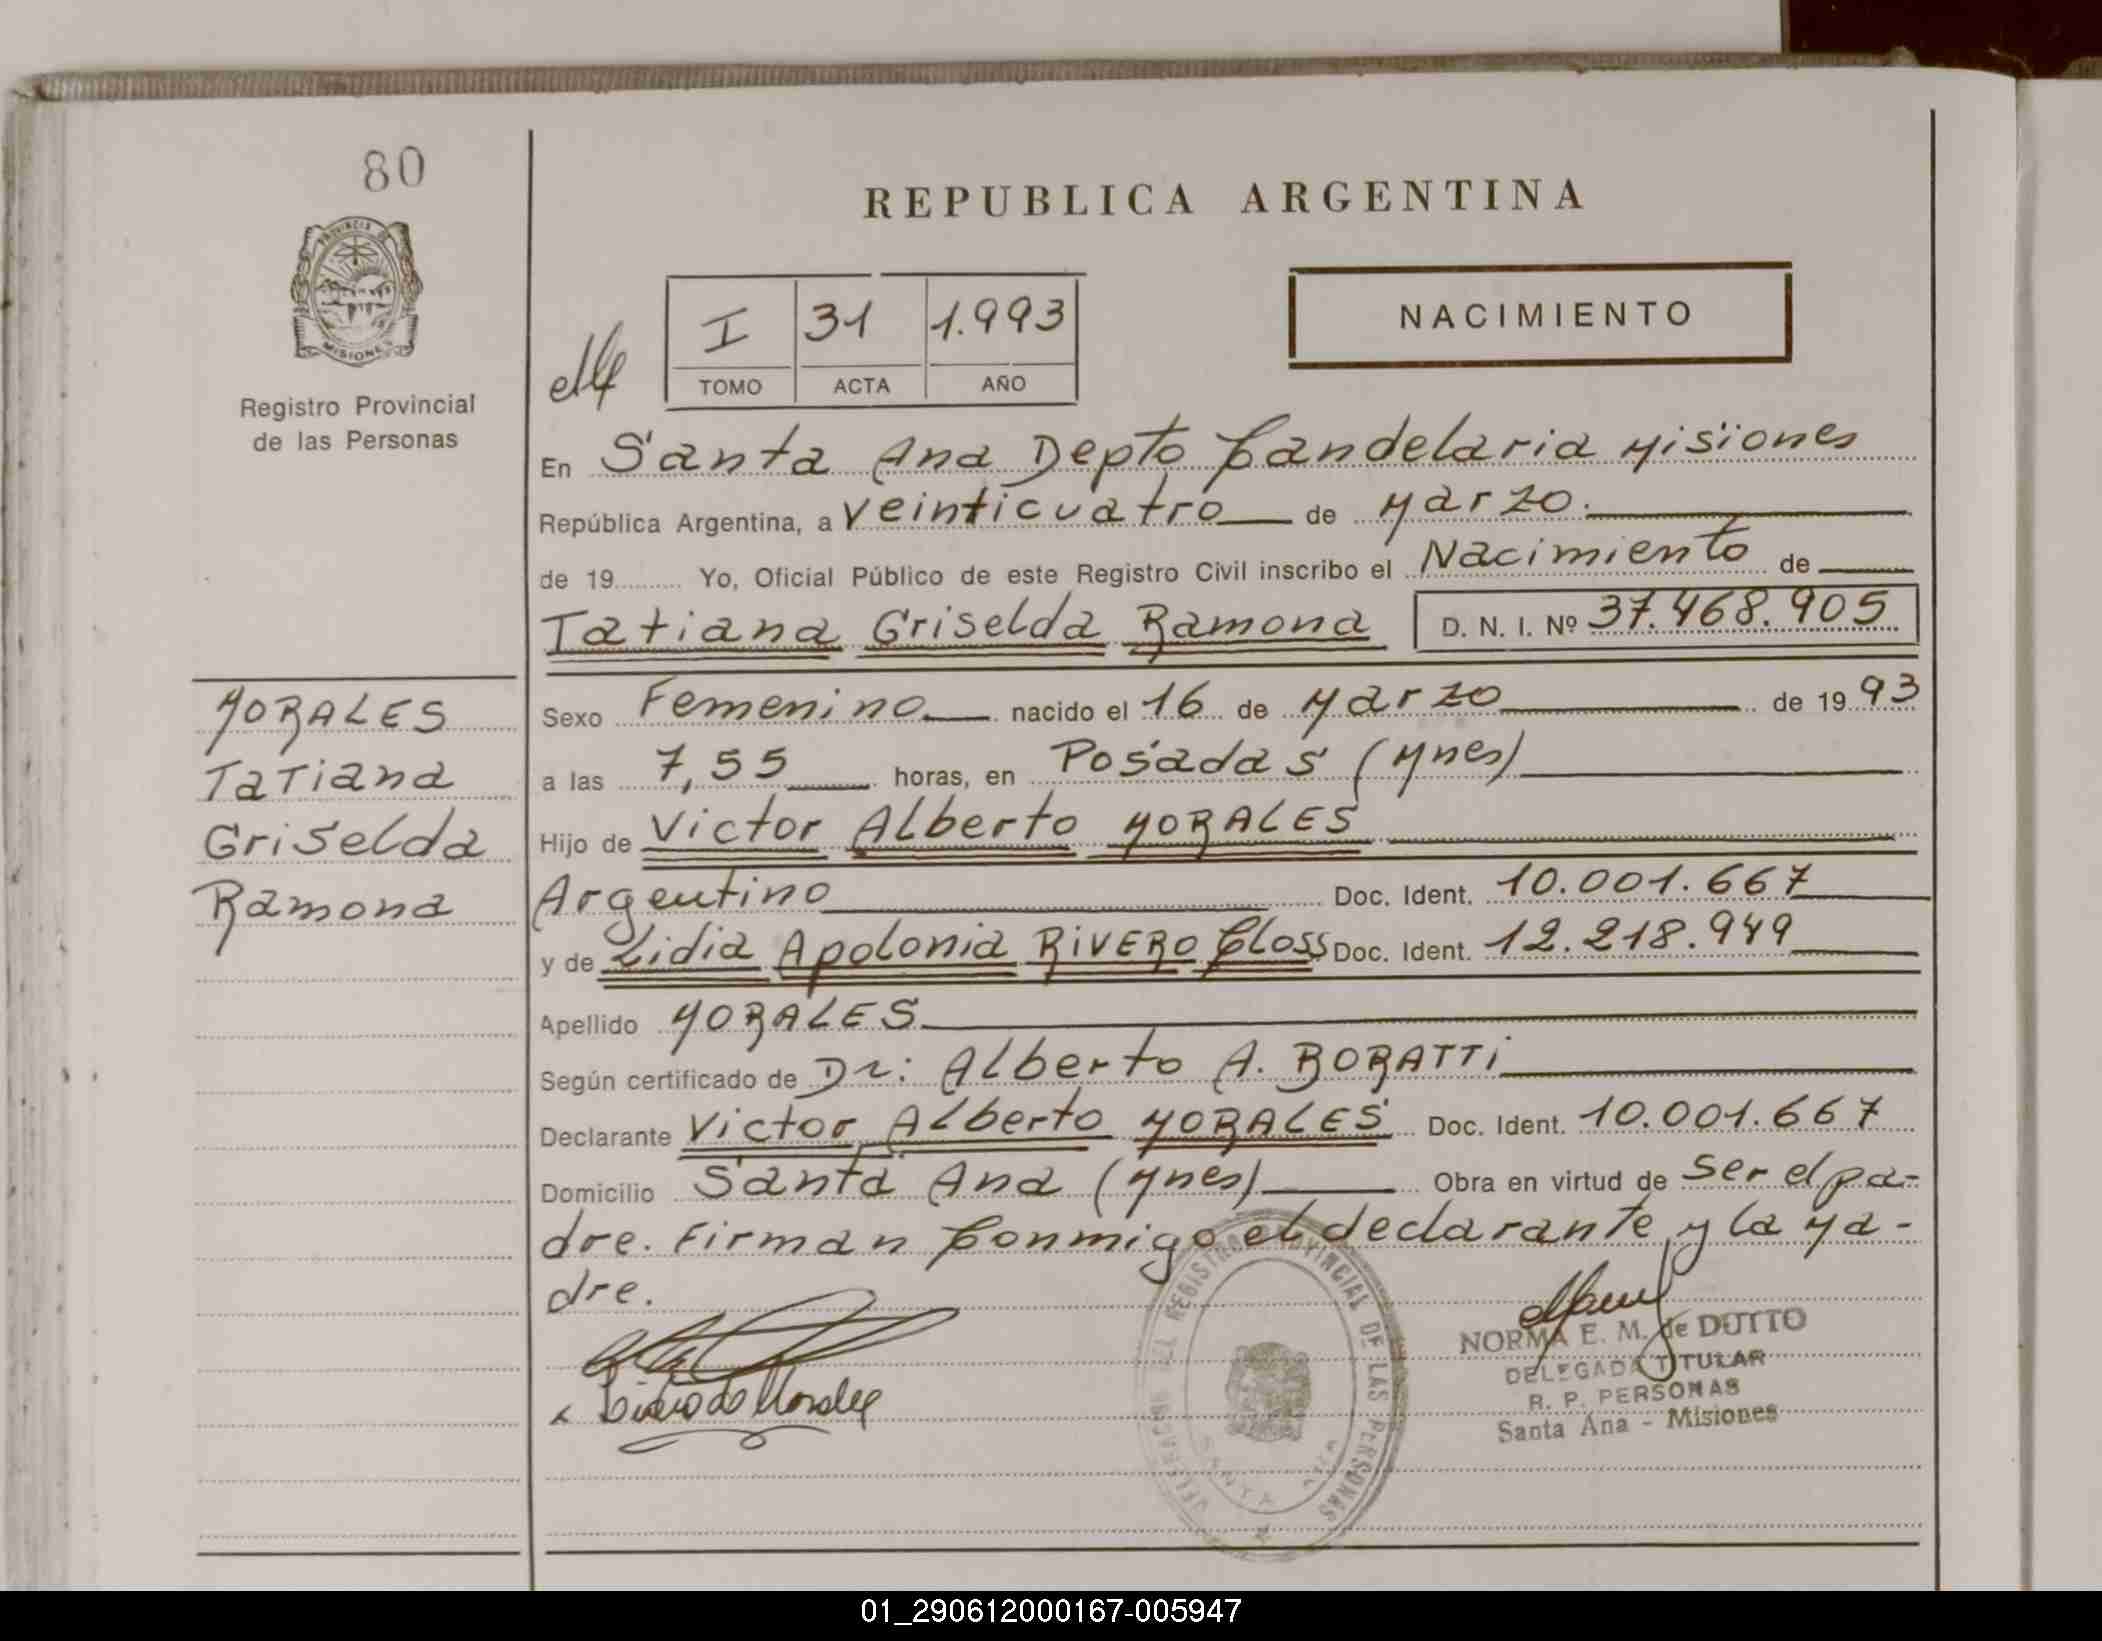 80
REPUBLICA ARGENTINA
PROVINCIA DE
MISIONES
Registro Provincial
de las Personas
I 31 1.993
TOMO ACTA AÑO
NACIMIENTO
En Santa Ana Depto Candelaria Misiones
República Argentina, a veinticuatro de Marzo.
de 19 Yo, Oficial Público de este Registro Civil inscribo el Nacimiento de
Tatiana Griselda Ramona D. N. I. Nº 37.468.905
MORALES
Tatiana
Griselda
Ramona
Sexo Femenino nacido el 16 de Marzo de 19 93
a las 7,55 horas, en Posadas (Mnes)
Hijo de Victor Alberto MORALES
Argentino Doc. Ident. 10.001.667
y de Lidia Apolonia RIVERO Closs Doc. Ident. 12.218.949
Apellido MORALES
Según certificado de Dr: Alberto A. BORATTi
Declarante Victor Alberto MORALES Doc. Ident. 10.001.667
Domicilio Santa Ana (Mnes) Obra en virtud de Ser el pa-
dre. Firman Conmigo el declarante y la Ma-
dre.
NORMA E. M. de DUTTO
DELEGADA TITULAR
R. P. PERSONAS
Santa Ana - Misiones
DELEGACION DEL REGISTRO PROVINCIAL DE LAS PERSONAS
SANTA ANA
01_290612000167-005947